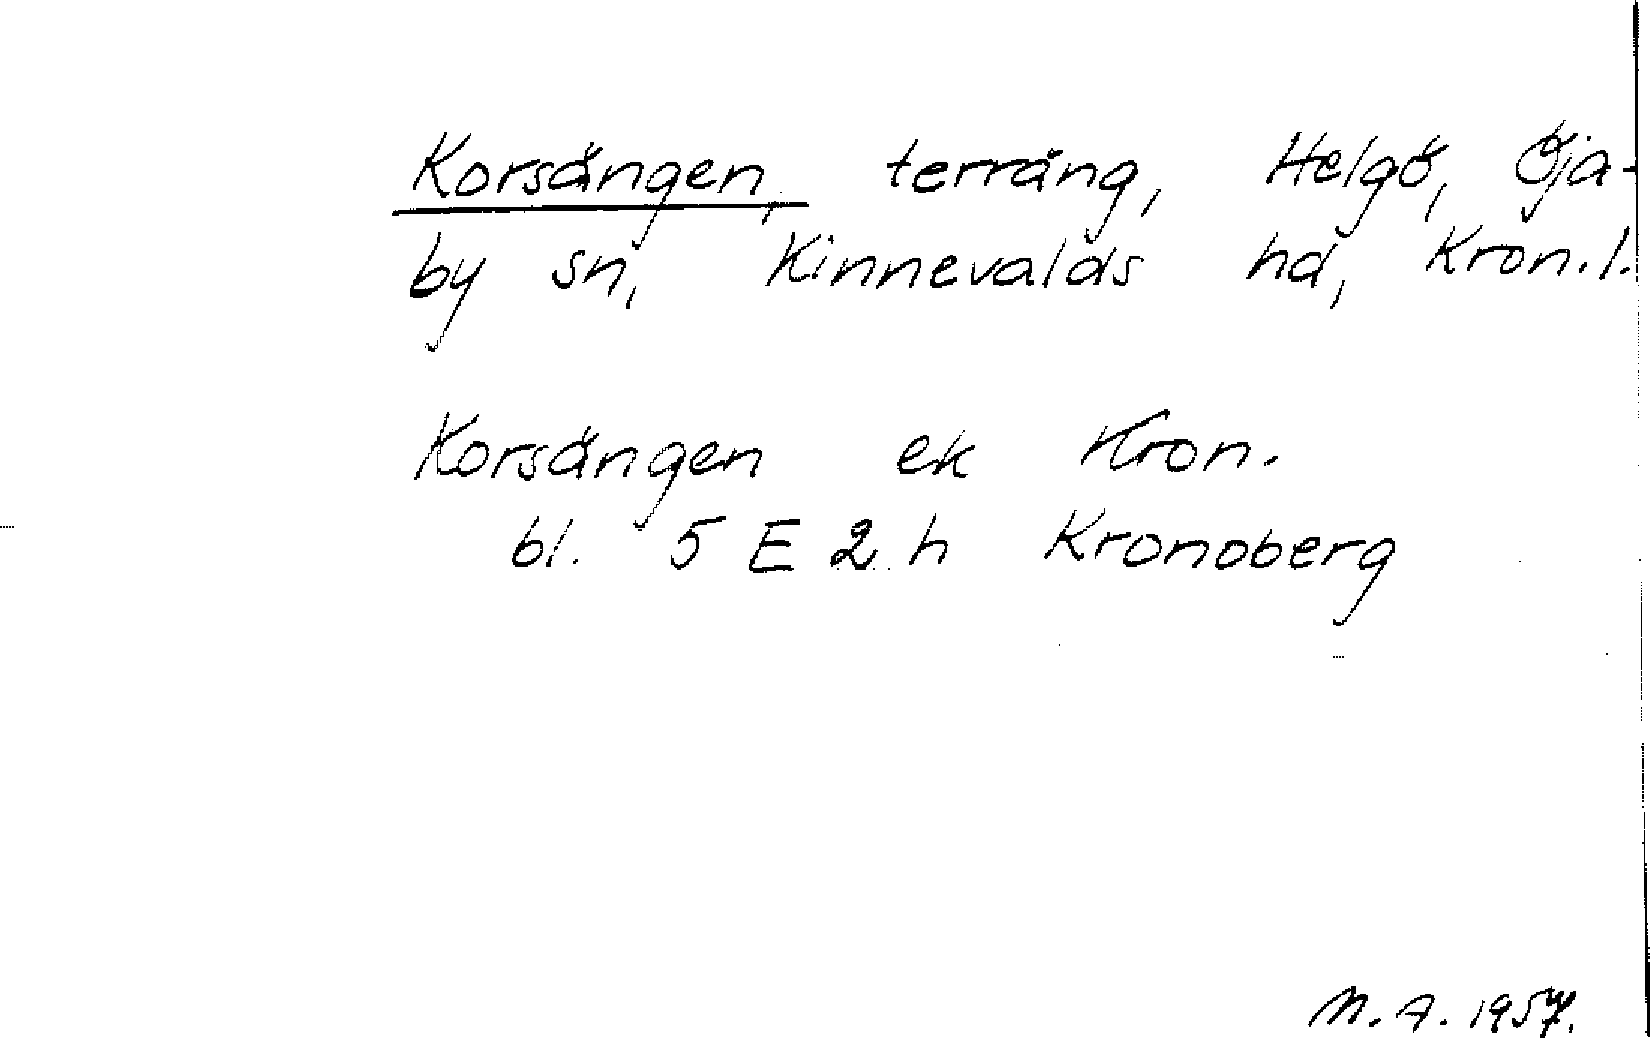 Korsängen, terräng, Helgö, Öja-
by sn, Kinnevalds hd, Kron.l.
Korsängen ek Kron.
bl. 5 E 2 h Kronoberg
M.A. 1957.